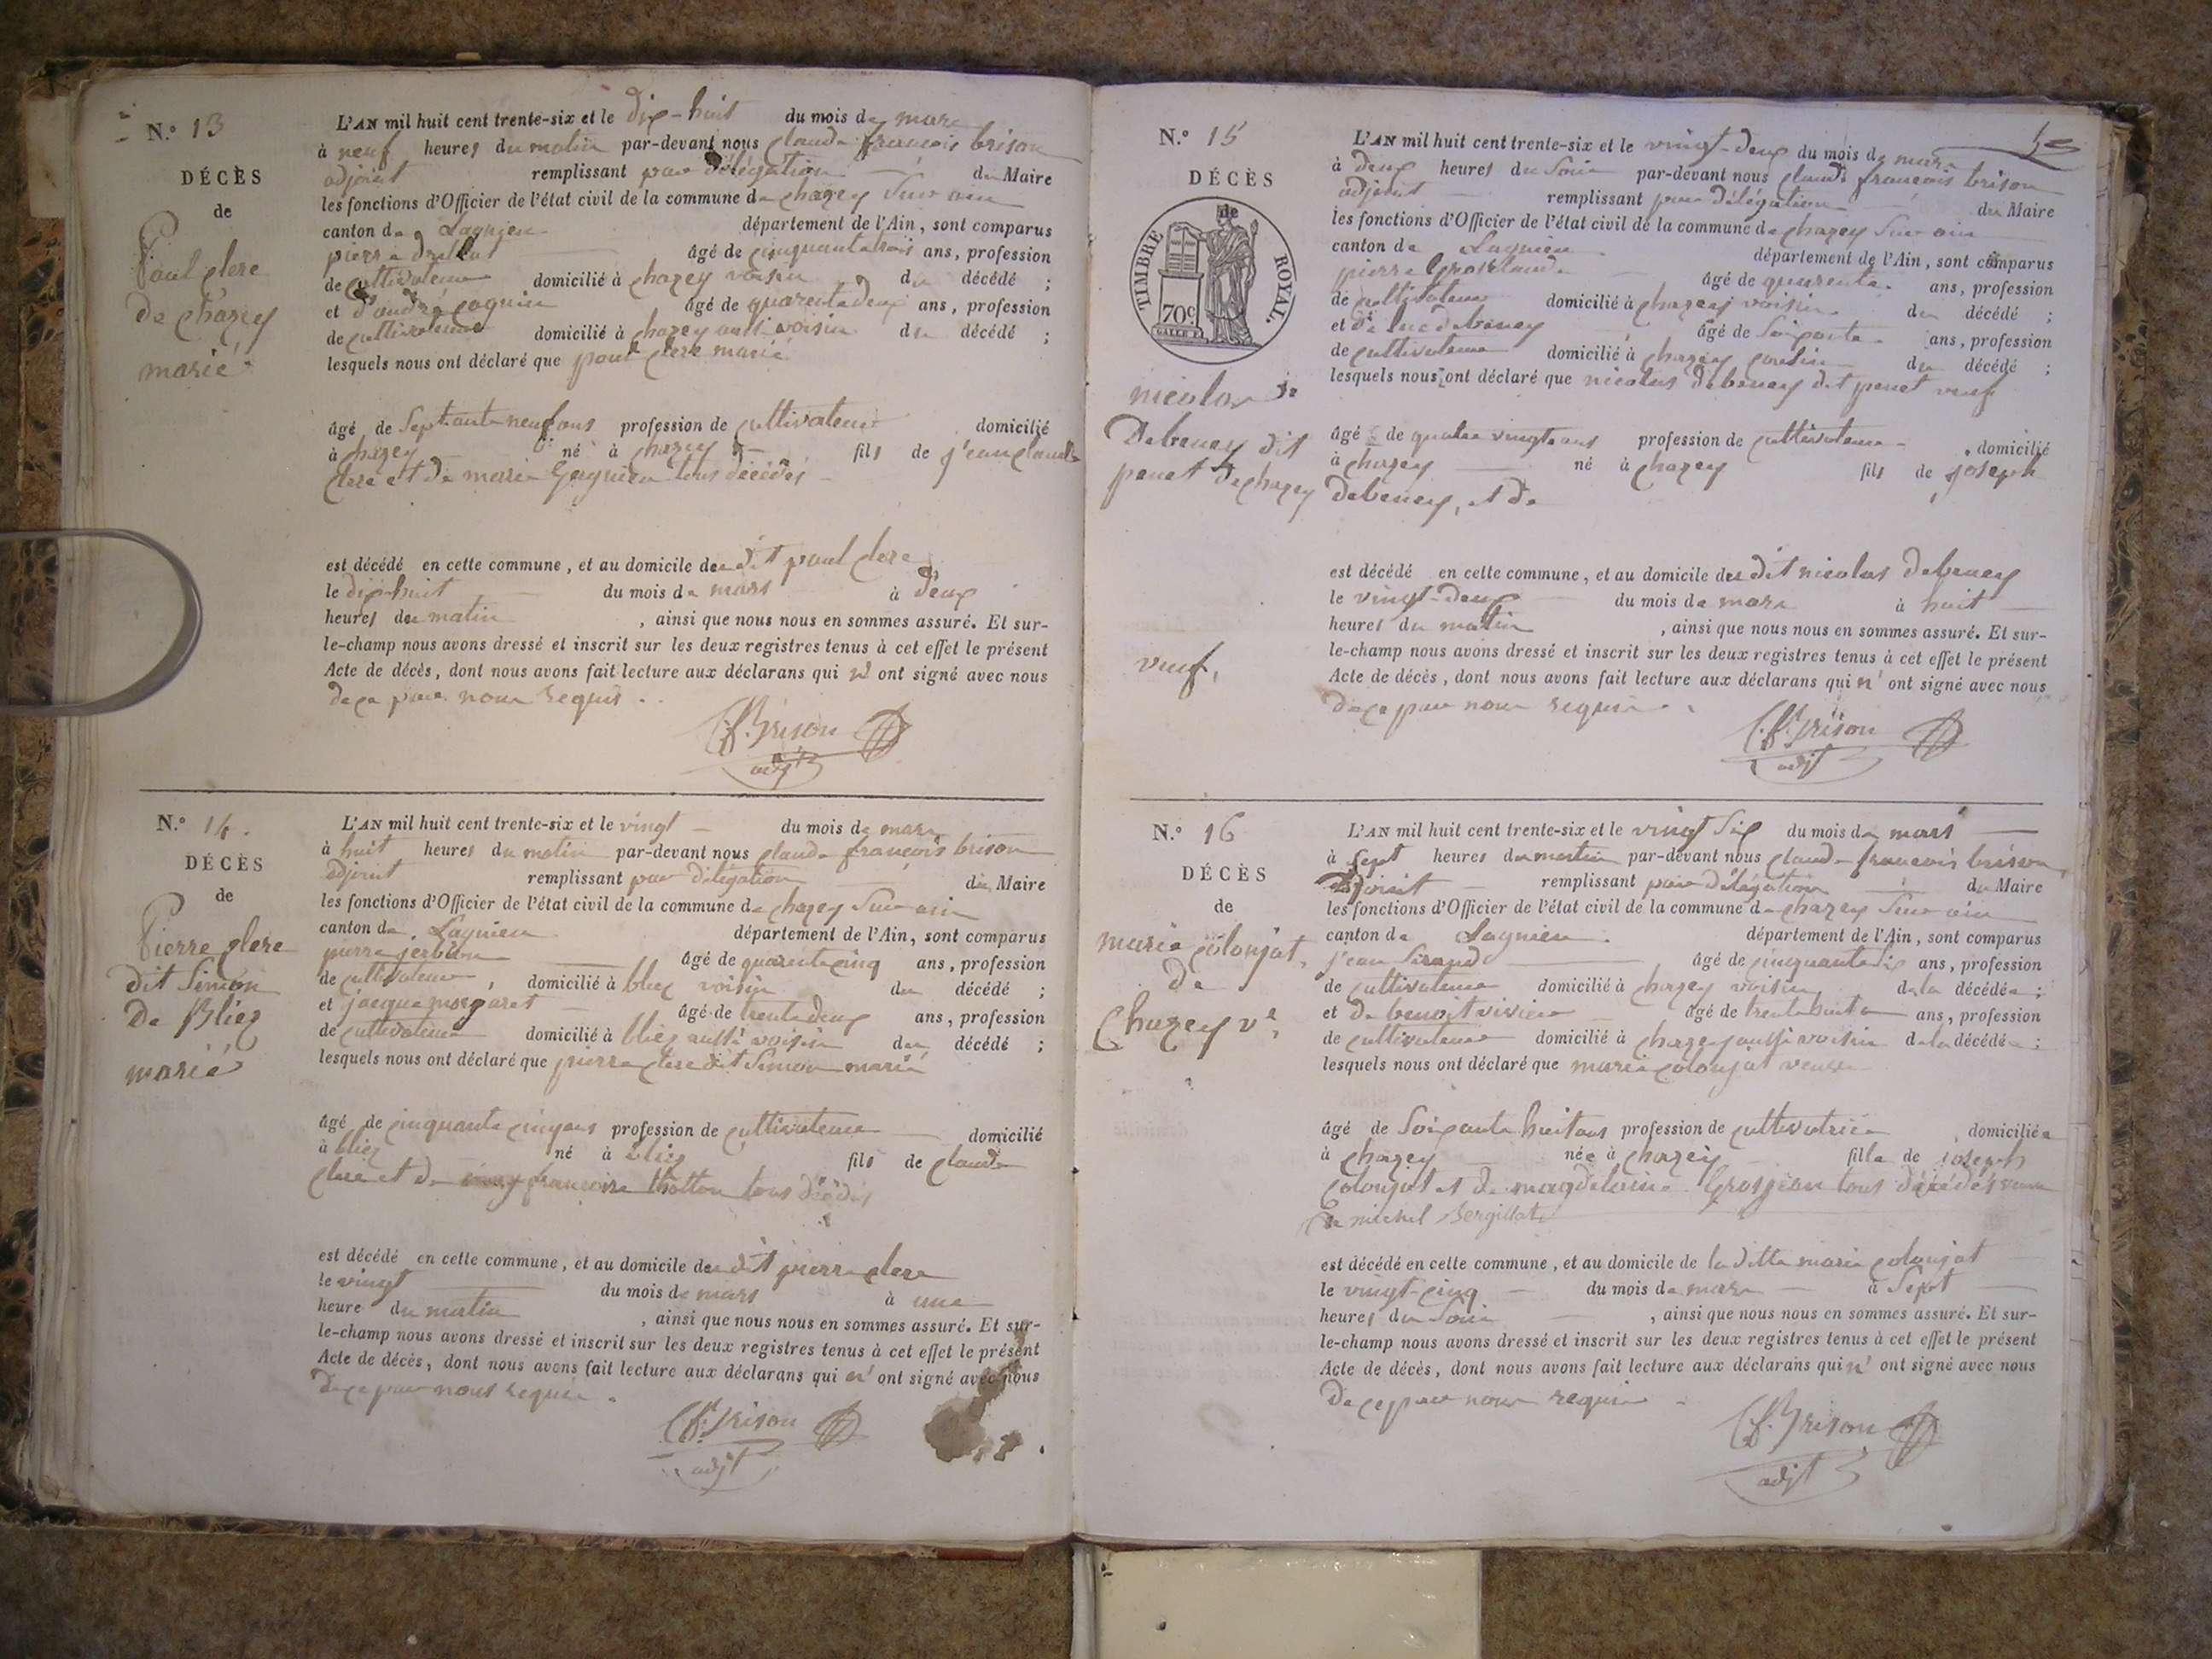 N.° 13
DÉCÈS
de
Paul clerc
de chazey
marié
L'AN mil huit cent trente-six et le dix-huit du mois de mars
à neuf heures du matin par-devant nous claude françois brison
adjoint remplissant par délégation du Maire
les fonctions d'Officier de l'état civil de la commune de chazey sur ain
canton de Lagnieu département de l'Ain, sont comparus
pierre âgé de cinquante trois ans, profession
de cultivateur domicilié à chazey voisin du décédé ;
et d'andré âgé de quarente deux ans, profession
de cultivateur domicilié à chazey aussi voisin du décédé ;
lesquels nous ont déclaré que paul clerc marié
âgé de septante neuf ans profession de cultivateur domicilié
à chazey né à chazey fils de jean claude
clerc et de marie tous décédés
est décédé en cette commune, et au domicile du dit paul clerc
le dix-huit du mois de mars à deux
heures du matin , ainsi que nous nous en sommes assuré. Et sur-
le-champ nous avons dressé et inscrit sur les deux registres tenus à cet effet le présent
Acte de décès, dont nous avons fait lecture aux déclarans qui n' ont signé avec nous
de ce par nous requis.
C. f. Brison
adjt
N.° 14.
DÉCÈS
de
Pierre clerc
dit Simon
De Bliez
marié
L'AN mil huit cent trente-six et le vingt du mois de mars
à huit heures du matin par-devant nous claude françois brison
adjoint remplissant par délégation du Maire
les fonctions d'Officier de l'état civil de la commune de chazey sur ain
canton de Lagnieu département de l'Ain, sont comparus
pierre âgé de quarente cinq ans, profession
de cultivateur, domicilié à bliez voisin du décédé ;
et jacque âgé de trente deux ans, profession
de cultivateur domicilié à bliez aussi voisin du décédé ;
lesquels nous ont déclaré que pierre clerc dit Simon marié
âgé de cinquante cinq ans profession de cultivateur domicilié
à bliez né à bliez fils de claude
clerc et de françoise tous décédés
est décédé en cette commune, et au domicile du dit pierre clerc
le vingt du mois de mars à une
heure du matin , ainsi que nous nous en sommes assuré. Et sur-
le-champ nous avons dressé et inscrit sur les deux registres tenus à cet effet le présent
Acte de décès, dont nous avons fait lecture aux déclarans qui n' ont signé avec nous
de ce par nous requis.
C. f. Brison
adjt
N.° 15
DÉCÈS
de
TIMBRE ROYAL.
70c
nicolas
Debeney dit
penet de chazey
veuf,
L'AN mil huit cent trente-six et le vingt-deux du mois de mars
à deux heures du soir par-devant nous claude françois brison
adjoint remplissant par délégation du Maire
les fonctions d'Officier de l'état civil de la commune de chazey sur ain
canton de Lagnieu département de l'Ain, sont comparus
pierre âgé de quarente ans, profession
de cultivateur domicilié à chazey voisin du décédé ;
et de luc debeney âgé de soixante ans, profession
de cultivateur domicilié à chazey cousin du décédé ;
lesquels nous ont déclaré que nicolas debeney dit penet veuf
âgé de quatre vingts ans profession de cultivateur domicilié
à chazey né à chazey fils de joseph
debeney, et de
est décédé en cette commune, et au domicile du dit nicolas debeney
le vingt-deux du mois de mars à huit
heures du matin , ainsi que nous nous en sommes assuré. Et sur-
le-champ nous avons dressé et inscrit sur les deux registres tenus à cet effet le présent
Acte de décès, dont nous avons fait lecture aux déclarans qui n' ont signé avec nous
de ce par nous requis.
C. f. Brison
adjt
N.° 16
DÉCÈS
de
marie colonjat,
de
Chazey ve,
L'AN mil huit cent trente-six et le vingt six du mois de mars
à sept heures du matin par-devant nous claude françois brison
adjoint remplissant par délégation du Maire
les fonctions d'Officier de l'état civil de la commune de chazey sur ain
canton de Lagnieu. département de l'Ain, sont comparus
jean Sirand âgé de cinquante six ans, profession
de cultivateur domicilié à chazey voisin de la décédée ;
et de benoit vivier âgé de trente huit ans, profession
de cultivateur domicilié à chazey aussi voisin de la décédée ;
lesquels nous ont déclaré que marie colonjat veuve
âgé de soixante huit ans profession de cultivatrice domiciliée
à chazey née à chazey fille de joseph
colonjat et de magdelaine Grosjean tous décédés veuve
de michel
est décédé en cette commune, et au domicile de la ditte marie colonjat
le vingt-cinq du mois de mars à sept
heures du soir , ainsi que nous nous en sommes assuré. Et sur-
le-champ nous avons dressé et inscrit sur les deux registres tenus à cet effet le présent
Acte de décès, dont nous avons fait lecture aux déclarans qui n' ont signé avec nous
de ce par nous requis
C. f. Brison
adjt